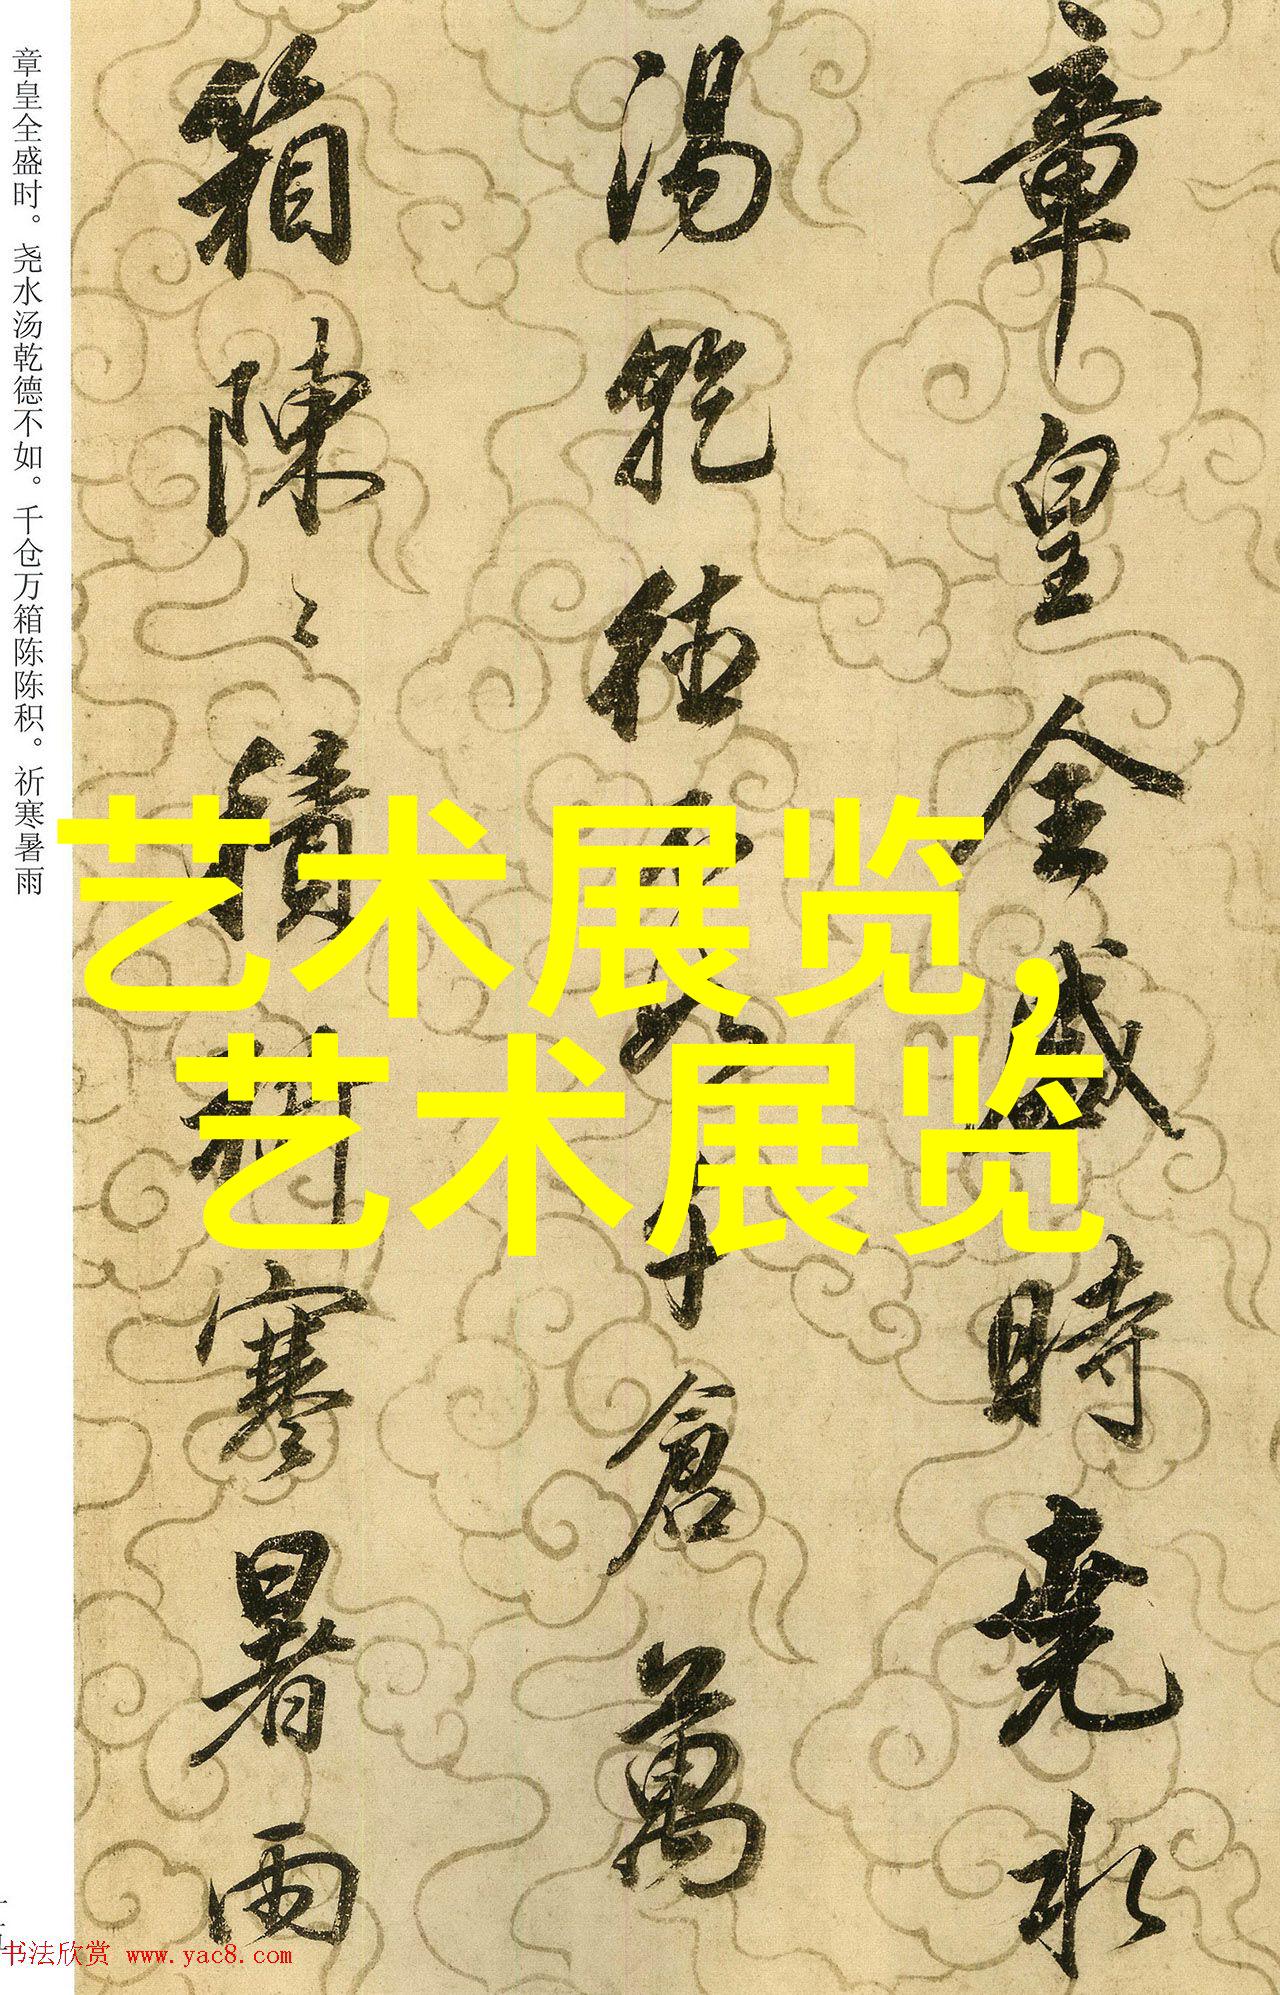 章皇全盛時堯水
湯乾德不如千倉萬
箱陳〻積祈寒暑雨
章皇全盛时。尧水汤乾德不如。千仓万箱陈陈积。祈寒暑雨
艺术展览,
艺术展览
书法欣赏 www.yac8.com